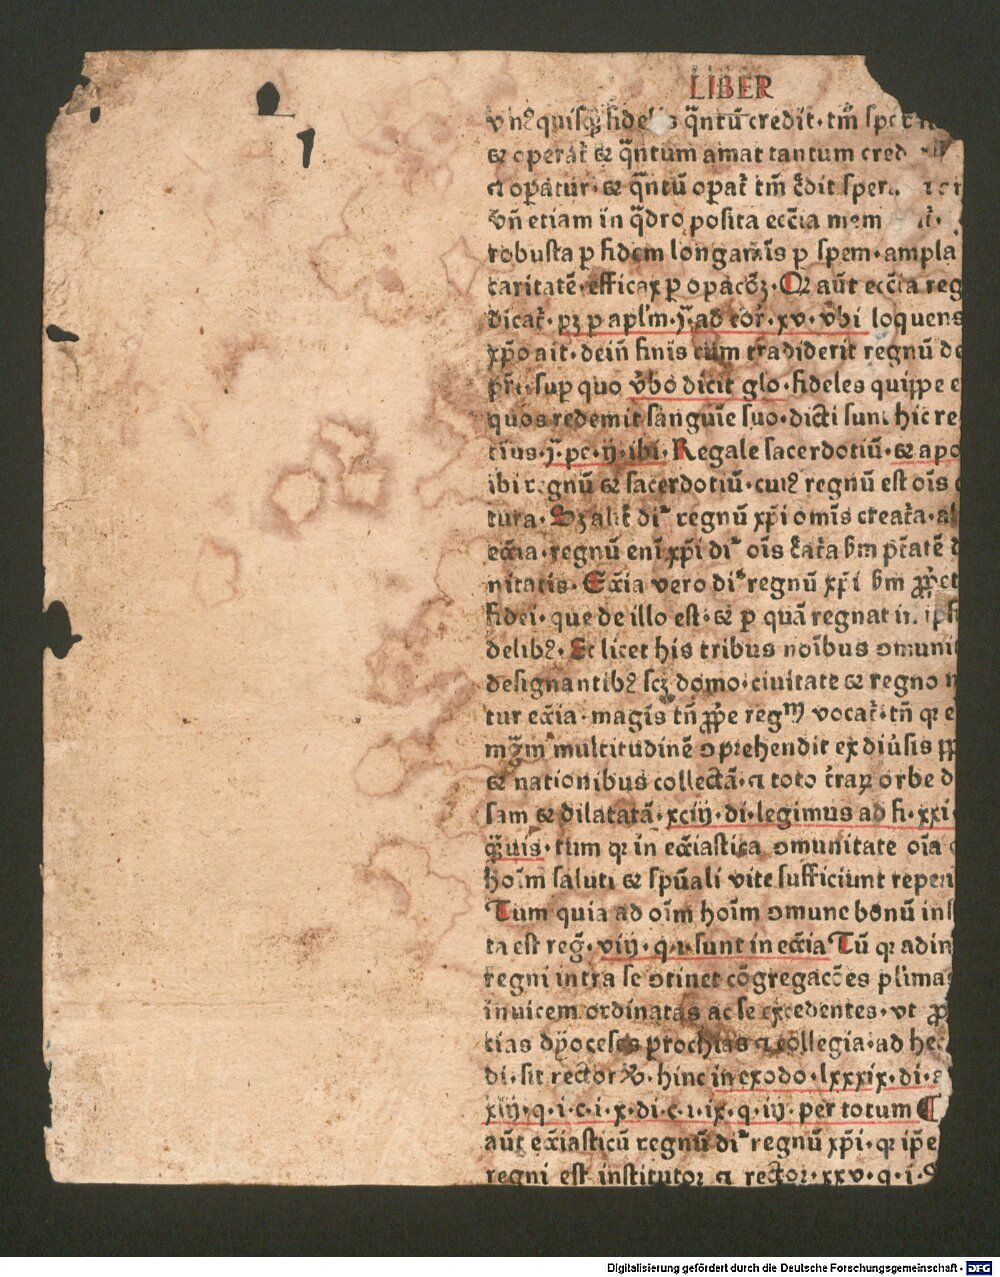 LIBER
vnꝰ quisqȝ fidelis q̃ntũ credit · tm̃ sper
⁊ operat̃ ⁊ q̃ntum amat tantum cred
⁊ op̃atur · ⁊ q̃ntũ opat̃ tm̃ c̃dit sper
Vñ etiam in q̃dro posita ecc̃ia
robusta p fidem longanĩs p spem · ampla
caritatẽ · efficax p opac̃oȝ · Qꝛ aũt ecc̃ia reg
dicat̃ · pȝ p apl'm · j̃ · ad cor̃ · xv · vbi loquens
xp̃o ait · deiñ finis cum tradiderit regnũ de
pr̃i · sup quo ṽbo dicit glo · fideles quippe e
quos redemit sanguĩe suo · dicti sunt hic re
tius · j̃ · pe · ij · ibi · Regale sacerdotiũ · ⁊ apo
ibi regnũ ⁊ sacerdotiũ · cuiꝰ regnũ est oĩs
tura · Sȝ alit̃ di͛ regnũ xp̃i omĩs creat̃a · al
ecc̃ia · regnũ enĩ xp̃i di͛ oĩs c̃at̃a s̃m p̃tatẽ d
nitatis · Ecc̃ia vero di͛ regnũ xp̃i s̃m ꝓp̃et
fidei · que de illo est · ⁊ p quã regnat in ip̃i
delibꝰ · Et licet his tribus noĩbus ↄmuni
designantibꝰ scȝ domo · ciuitate ⁊ regno n
tur ecc̃ia · magis tñ ꝓp̃e regᵐ vocat̃ · tñ qꝛ e
mg̃m multitudinẽ ↄprehendit ex diũsis
⁊ nationibus collectã · ⁊ toto t̃raꝝ orbe d
sam ⁊ dilatatã · xciij · di · legimus ad fi · xxi
q̃uis · tum qꝛ in ecc̃iastica ↄmunitate oĩa
hoĩm saluti ⁊ sp̃uali vite sufficiunt reperi
Tum quia ad oĩm hoĩm ↄmune bonũ ins
ta est reg̃ · viij · q · i · sunt in ecc̃ia Tũ qꝛ ad in
regni intra se ↄtinet cõgregac̃oes pl'imas
inuicem ordinatas ac se excedentes · vt ꝓ
tias dyoceses prochias ⁊ collegia · ad hec
di · sit rector · hinc in exodo · lxxxix · di ·
xiij · q · i · c · i · x · di · c · i · ix · q · iij · per totum ¶
aũt ecc̃iasticũ regnũ di͛ regnũ xp̃i · qꝛ ip̃e
regni est institutor ⁊ rector · xxv · q · i ·
Digitalisierung gefördert durch die Deutsche Forschungsgemeinschaft - DFG